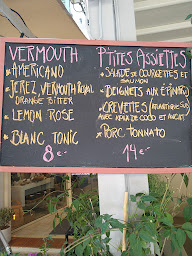 VERMOUTH
* AMERICANO
* JEREZ, VERMOUTH ROYAL
ORANGE BITTER
* LEMON ROSE
* BLANC TONIC
8 €
P'TITES ASSIETTES
* SALADE DE COURGETTES ET
SAUMON
* BEIGNETS AUX ÉPINARDS
* CREVETTES (ATLANTIQUE SUD)
AVEC
DE COCO ET
* PORC TONNATO
14 €